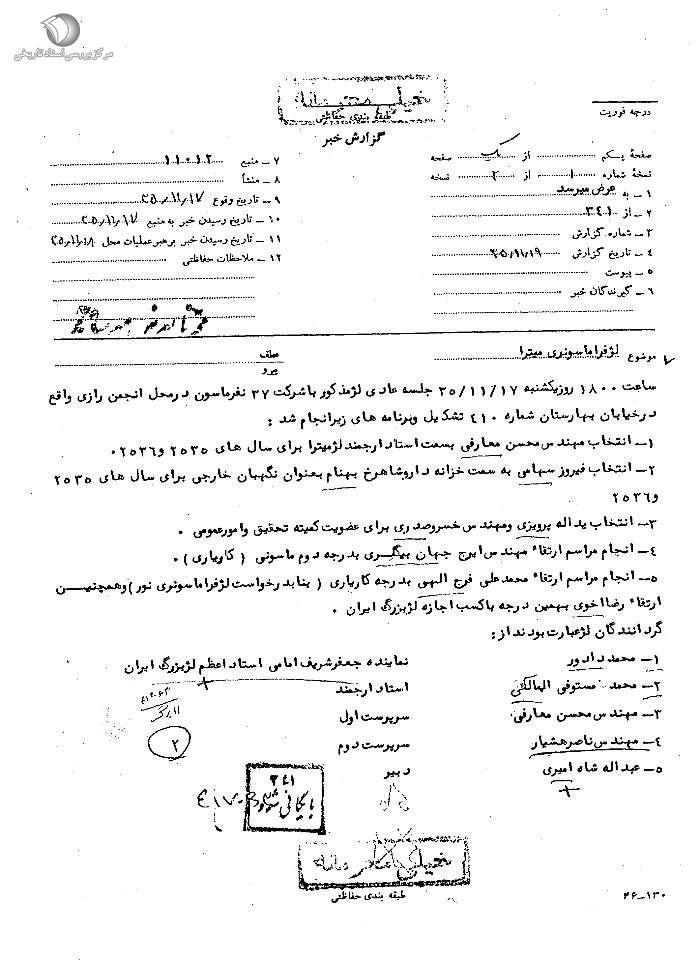 مرکز بررسی اسناد تاریخی
خیلی محرمانه
طبقه بندی حفاظتی
درجه فوریت
گزارش خبر
صفحهٔ یکم از یک صفحه
نسخهٔ شماره ۱ از ۲ نسخه
۱ ــ به عرض میرسد
۲ ــ از ۳۴۱
۳ ــ شماره گزارش
۴ ــ تاریخ گزارش ۳۵/۱۱/۱۹
۵ ــ پیوست
۶ ــ گیرندگان خبر
۷ ــ منبع ۱۱۰۱۲
۸ ــ منشأ
۹ ــ تاریخ وقوع ۳۵/۱۱/۱۷
۱۰ ــ تاریخ رسیدن خبر به منبع ۳۵/۱۱/۱۷
۱۱ ــ تاریخ رسیدن خبر برهبر عملیات محل ۳۵/۱۱/۱۸
۱۲ ــ ملاحظات حفاظتی
موضوع لژفراماسونری میترا
عطف
پیرو
ساعت ۱۸۰۰ روزیکشنبه ۳۵/۱۱/۱۷ جلسه عادی لژمذکور باشرکت ۳۷ نفرماسون درمحل انجمن رازی واقع
درخیابان بهارستان شماره ۴۱۰ تشکیل وبرنامه های زیرانجام شد :
۱ــ انتخاب مهندس محسن معارفی بسمت استاد ارجمند لژمیترا برای سال های ۲۵۳۵ و۲۵۳۶.
۲ــ انتخاب فیروز سهامی به سمت خزانه داروشاهرخ بهنام بعنوان نگهبان خارجی برای سال های ۲۵۳۵
و۲۵۳۶
۳ــ انتخاب یداله پرویزی ومهندس خسروصدری برای عضویت کمیته تحقیق وامورعمومی .
۴ــ انجام مراسم ارتقاء مهندس ایرج جهان بیگلری بدرجه دوم ماسونی ( کاریاری ) .
۵ــ انجام مراسم ارتقاء محمدعلی فرج الهی بدرجه کاریاری ( بنابدرخواست لژفراماسونری نور ) وهمچنین
ارتقاء رضااخوی بهمین درجه باکسب اجازه لژبزرگ ایران .
گردانندگان لژعبارت بودند از :
۱ــ محمد دادور نماینده جعفرشریف امامی استاد اعظم لژبزرگ ایران
۲ــ محمد مستوفی الممالکی استاد ارجمند
۳ــ مهندس محسن معارفی سرپرست اول
۴ــ مهندس ناصرهشیار سرپرست دوم
۵ــ عبداله شاه امیری دبیر
۲
۳۴۱
بایگانی شود
خیلی محرمانه
طبقه بندی حفاظتی
۴۶ــ۱۳۰